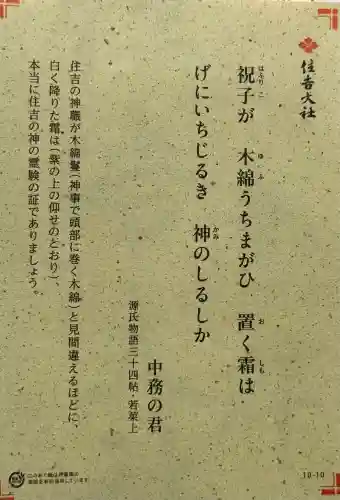 住吉大社
祝子が　木綿うちまがひ　置く霜は
はふりこ　ゆふ　お　しも
げにいちじるき　神のしるしか
かみ
中務の君
源氏物語三十四帖・若菜上
住吉の神職が木綿鬘(神事で頭部に巻く木綿)と見間違えるほどに、
白く降りた霜は(紫の上の仰せのとおり)、
本当に住吉の神の霊験の証でありましょう。
19-10